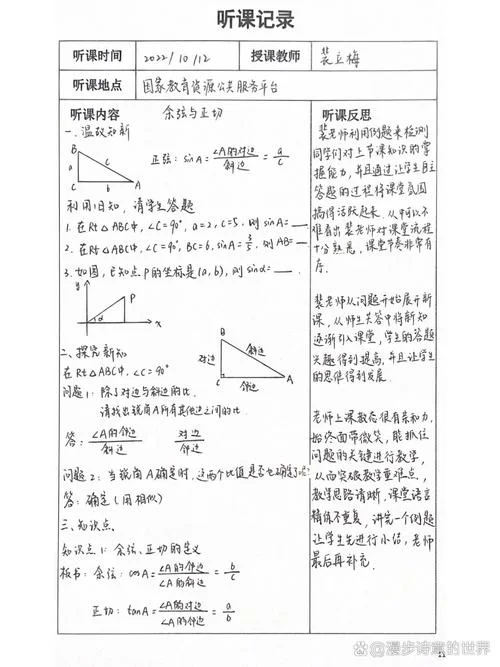 听课记录
听课时间 2022/10/12 授课教师 裴立梅
听课地点 国家教育资源公共服务平台
听课内容 余弦与正切
一、温故知新
B
a c
C b A
正弦: sinA = ∠A的对边/斜边 = a/c
利用旧知，请学生答题
1. 在Rt△ABC中, ∠C=90°, a=2, c=5, 则 sinA=
2. 在Rt△ABC中, ∠C=90°, BC=6, sinA=3/5, 则AB=
3. 如图, 已知点P的坐标是(a, b), 则sinα=
y
P
α
x
二、探究新知
在Rt△ABC中, ∠C=90°
问题1: 除了对边与斜边的比
请找出锐角A所有其他边之间的比
B
对边 斜边
C 邻边 A
答: ∠A的邻边/斜边 对边/邻边
问题2: 当锐角A确定时, 这两个比值是否也确定了呢?
答: 确定 (用相似)
三、知识点
知识点1: 余弦、正切的定义
板书: 余弦: cosA = ∠A的邻边/∠A的斜边 = b/c
正切: tanA = ∠A的对边/∠A的邻边 = a/b
听课反思
裴老师利用例题来检测
同学们对上节课知识的掌
握能力, 并且通过让学生自主
答题的过程将课堂氛围
搞得活跃起来. 从中可以不
难看出裴老师对课堂流程
十分熟悉, 课堂节奏非常有
序.
裴老师从问题开始展开新
课, 从师生共答中将新知
逐渐引入课堂, 学生的答题
兴趣得到提高, 并且让学生
的思维得到发展.
老师上课教态很有亲和力,
始终面带微笑, 能抓住
问题的关键进行教学,
从而突破教学重难点,
教学思路清晰, 课堂语言
精练不重复, 讲完一个例题
让学生先进行小结, 老师
最后再补充.
@漫步诗意的世界